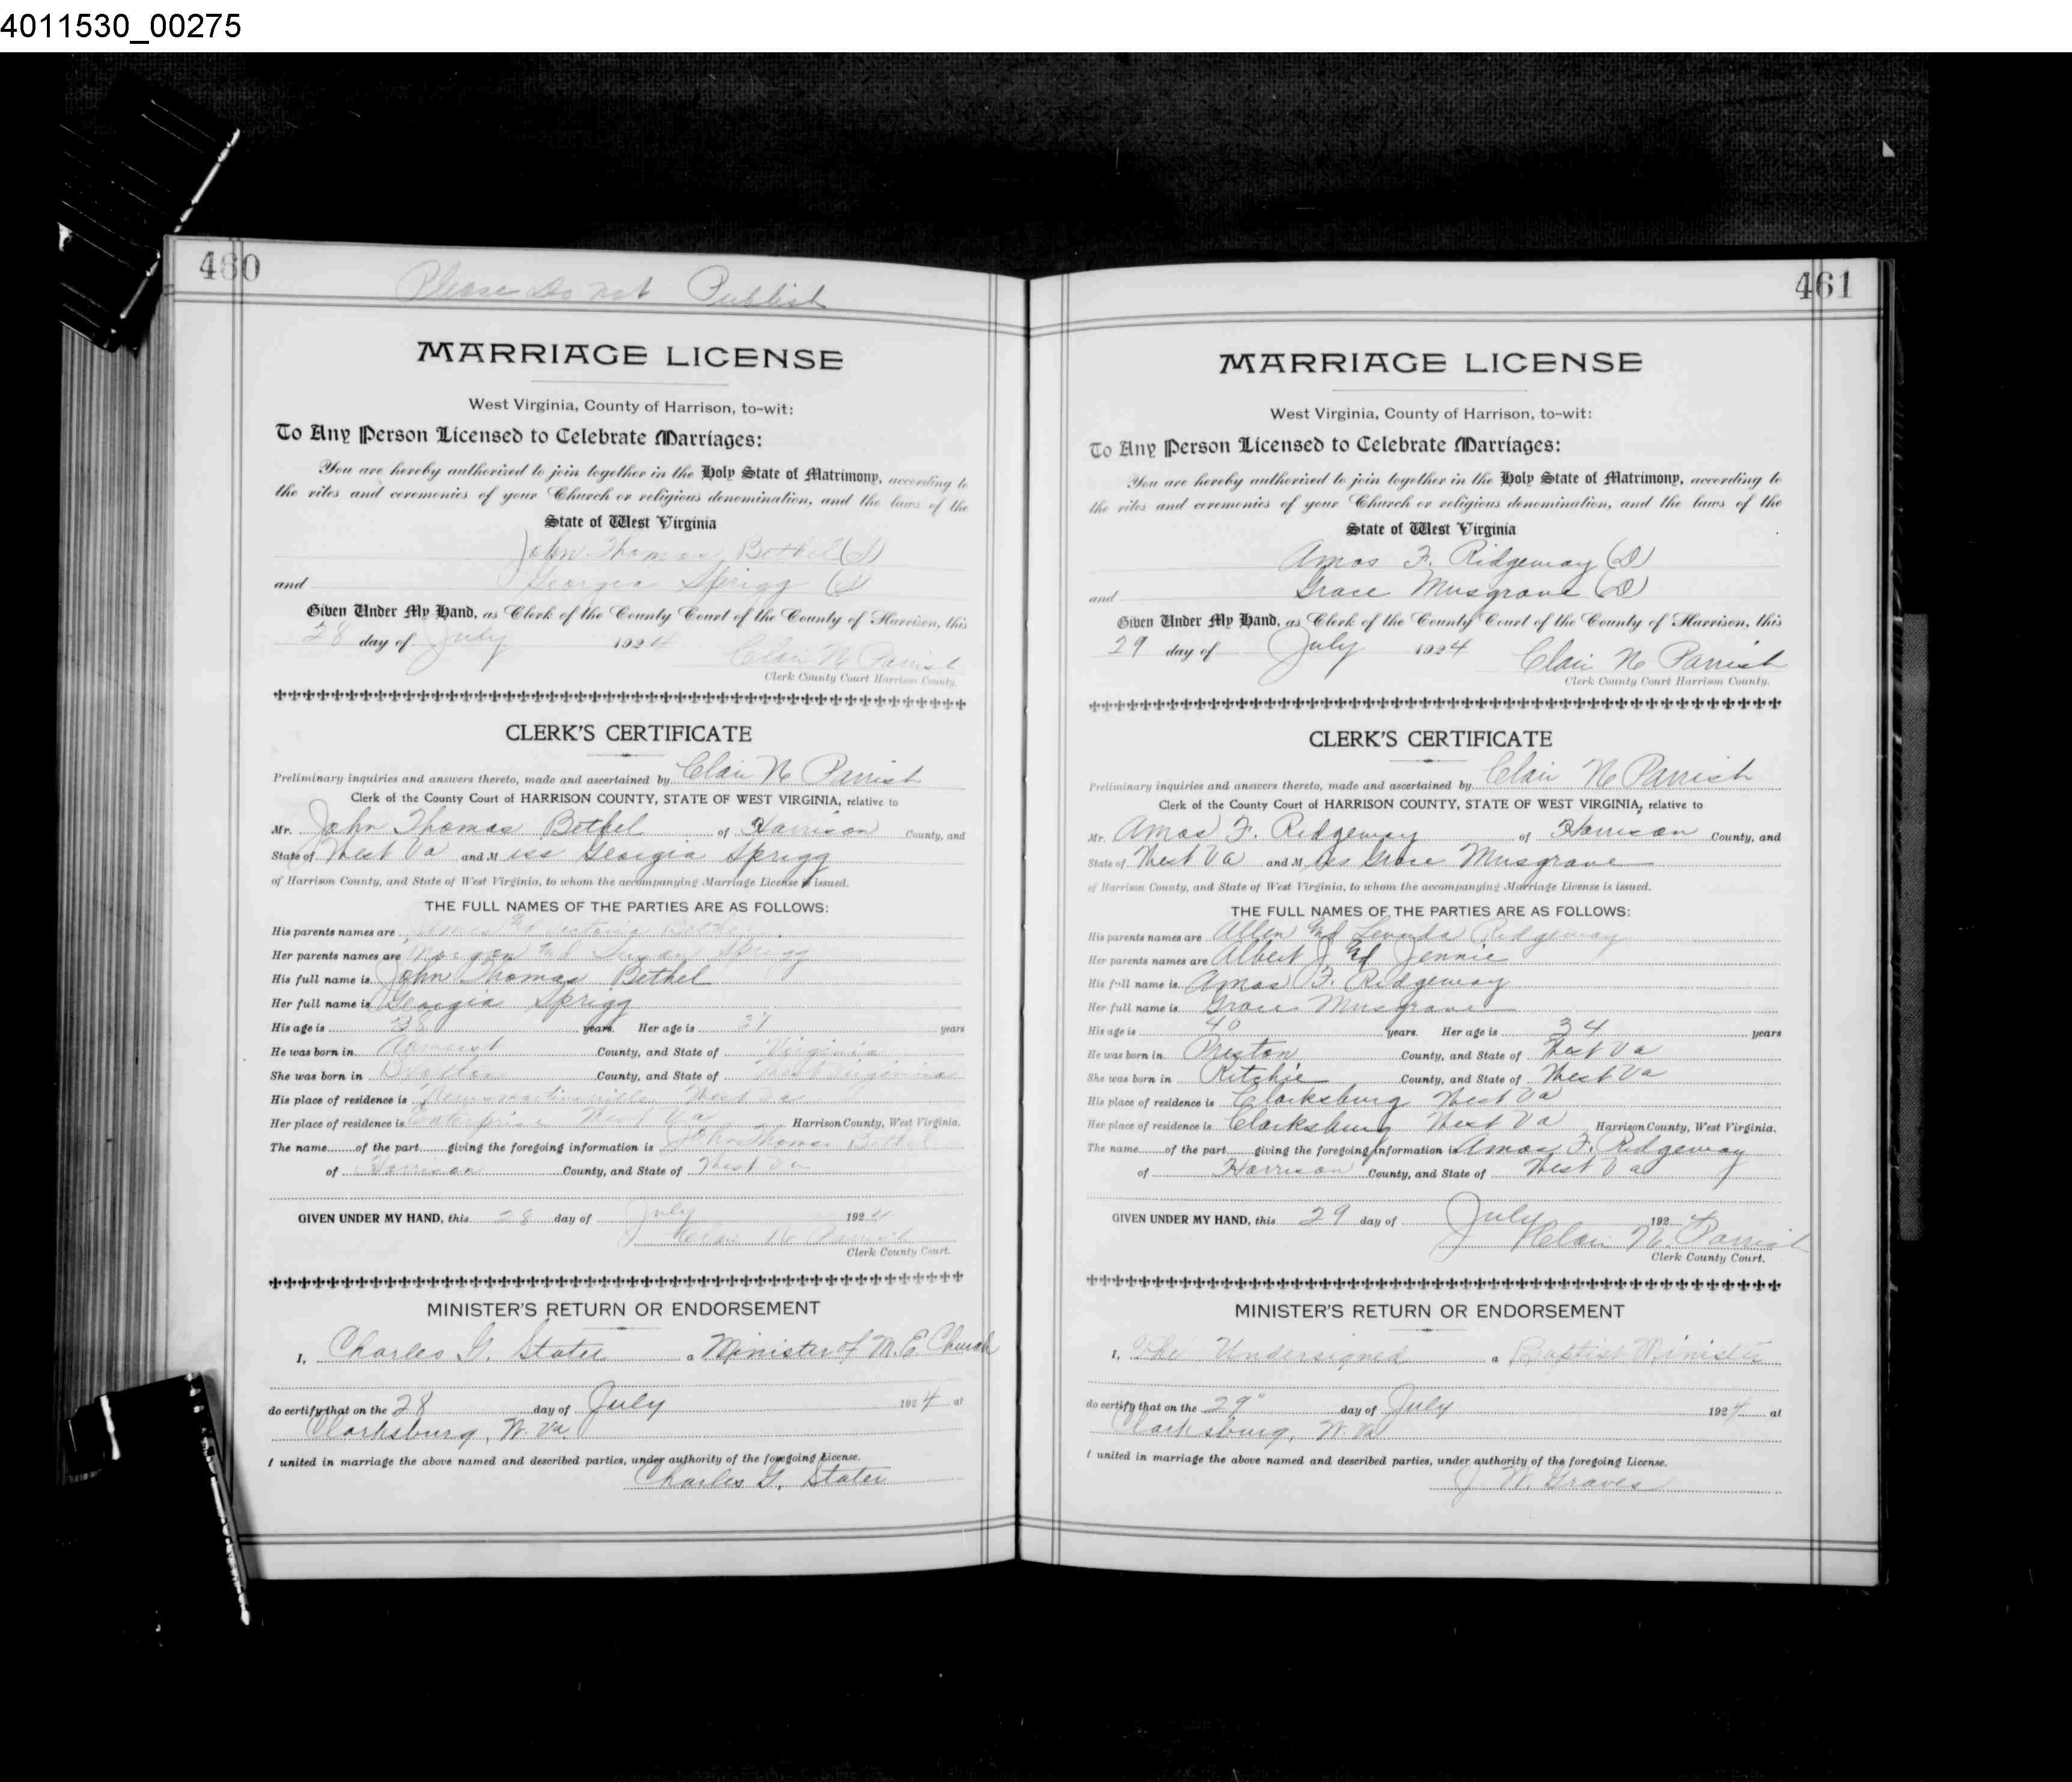 4011530_00275
460
Please Do not Publish
MARRIAGE LICENSE
West Virginia, County of Harrison, to-wit:
To Any Person Licensed to Celebrate Marriages:
You are hereby authorized to join together in the Holy State of Matrimony, according to
the rites and ceremonies of your Church or religious denomination, and the laws of the
State of West Virginia
John Thomas Bethel (S)
and Georgia Sprigg (S
Given Under My Hand, as Clerk of the County Court of the County of Harrison, this
28 day of July 1924 Clair N Parrish
Clerk County Court Harrison County.
CLERK'S CERTIFICATE
Preliminary inquiries and answers thereto, made and ascertained by Clair N Parrish
Clerk of the County Court of HARRISON COUNTY, STATE OF WEST VIRGINIA, relative to
Mr. John Thomas Bethel of Harrison County, and
State of West Va and Miss Georgia Sprigg
of Harrison County, and State of West Virginia, to whom the accompanying Marriage License is issued.
THE FULL NAMES OF THE PARTIES ARE AS FOLLOWS:
His parents names are Bethel
Her parents names are Morgan and Susan Sprigg
His full name is John Thomas Bethel
Her full name is Georgia Sprigg
His age is 38 years. Her age is years
He was born in Amherst County, and State of Virginia
She was born in Braxton County, and State of West Virginia
His place of residence is Newmartinsville West Va
Her place of residence is Enterprise West Va Harrison County, West Virginia.
The name of the part giving the foregoing information is John Thomas Bethel
of Harrison County, and State of West Va
GIVEN UNDER MY HAND, this 28 day of July 1924
Clair N Parrish
Clerk County Court.
MINISTER'S RETURN OR ENDORSEMENT
I, Charles G. Stater a Minister of M.E. Church
do certify that on the 28 day of July 1924 at
Clarksburg, W. Va.
I united in marriage the above named and described parties, under authority of the foregoing License.
Charles G. Stater
461
MARRIAGE LICENSE
West Virginia, County of Harrison, to-wit:
To Any Person Licensed to Celebrate Marriages:
You are hereby authorized to join together in the Holy State of Matrimony, according to
the rites and ceremonies of your Church or religious denomination, and the laws of the
State of West Virginia
Amos F. Ridgeway (D)
and Grace Musgrave (D)
Given Under My Hand, as Clerk of the County Court of the County of Harrison, this
29 day of July 1924 Clair N Parrish
Clerk County Court Harrison County.
CLERK'S CERTIFICATE
Preliminary inquiries and answers thereto, made and ascertained by Clair N Parrish
Clerk of the County Court of HARRISON COUNTY, STATE OF WEST VIRGINIA, relative to
Mr. Amos F. Ridgeway of Harrison County, and
State of West Va and Mrs Grace Musgrave
of Harrison County, and State of West Virginia, to whom the accompanying Marriage License is issued.
THE FULL NAMES OF THE PARTIES ARE AS FOLLOWS:
His parents names are Allen and Levada Ridgeway
Her parents names are Albert J and Jennie
His full name is Amos F. Ridgeway
Her full name is Grace Musgrave
His age is 40 years. Her age is 34 years
He was born in Preston County, and State of West Va
She was born in Ritchie County, and State of West Va
His place of residence is Clarksburg West Va
Her place of residence is Clarksburg West Va Harrison County, West Virginia.
The name of the part giving the foregoing information is Amos F. Ridgeway
of Harrison County, and State of West Va
GIVEN UNDER MY HAND, this 29 day of July 1924
Clair N. Parrish
Clerk County Court.
MINISTER'S RETURN OR ENDORSEMENT
I, The Undersigned a Baptist Minister
do certify that on the 29" day of July 1924 at
Clarksburg, W. Va
I united in marriage the above named and described parties, under authority of the foregoing License.
J. W. Graves